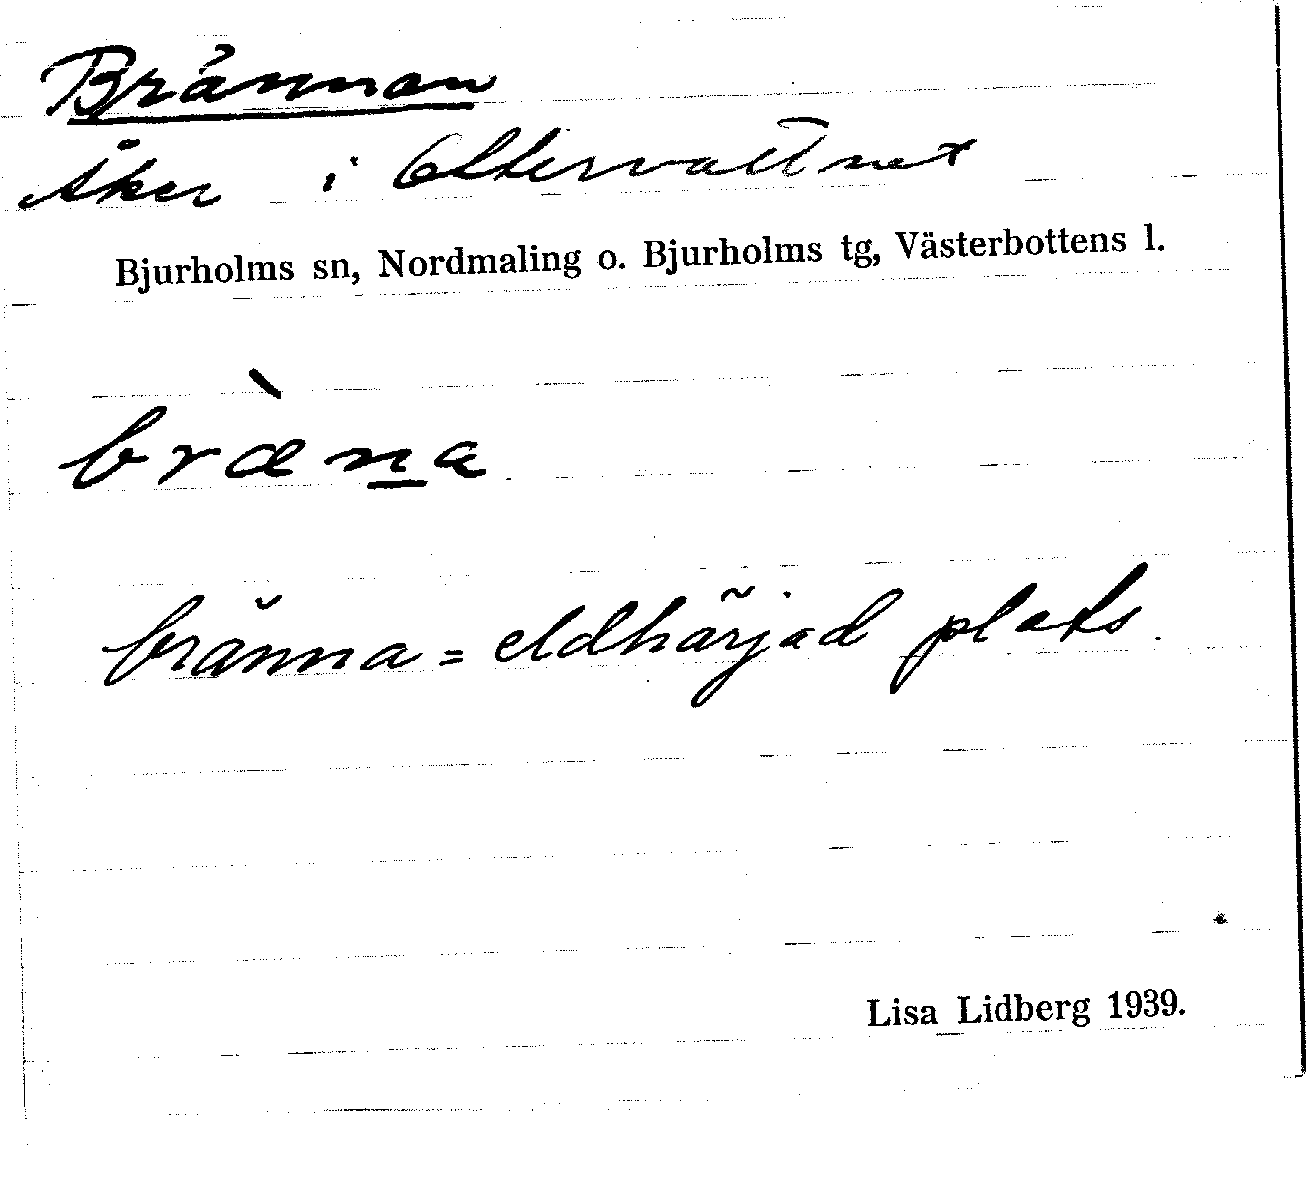 Brännan
Åker i Ottervattnet
Bjurholms sn, Nordmaling o. Bjurholms tg, Västerbottens l.
bræ̀n̲a
bränna = eldhärjad plats.
Lisa Lidberg 1939.